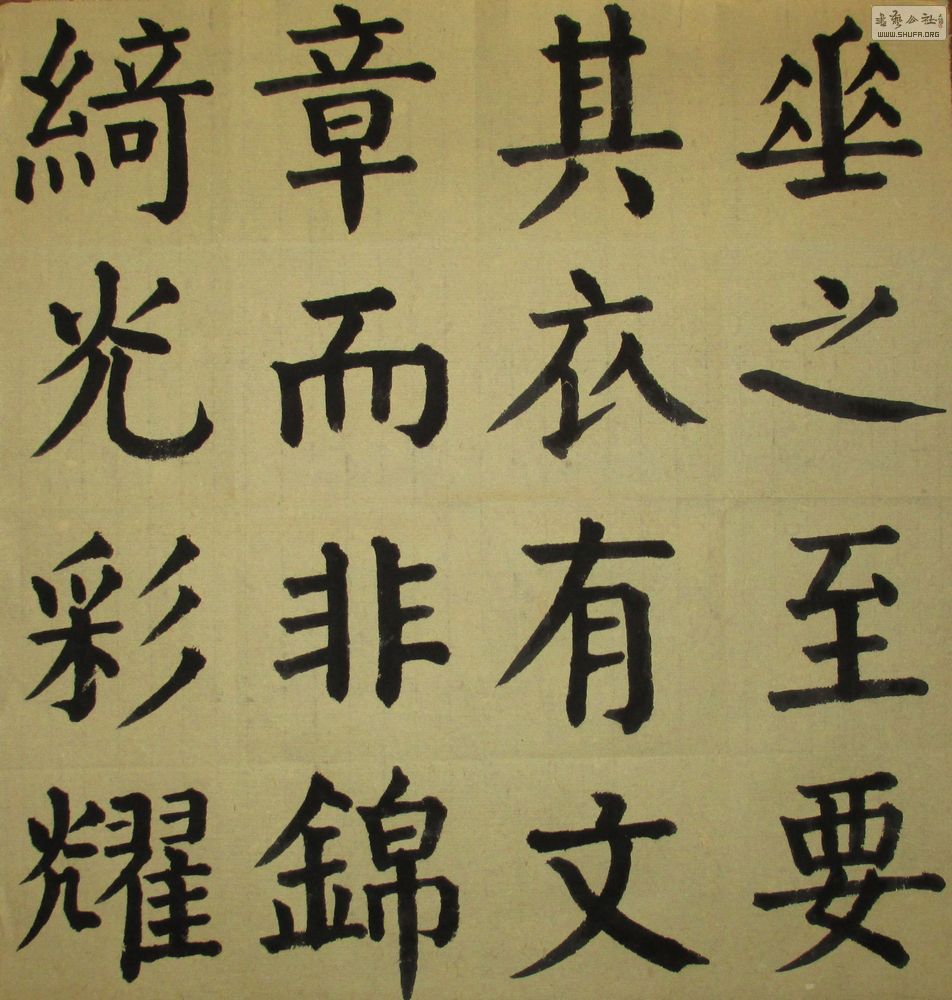 華之至要
其衣有文
章而非錦
綺光彩耀
书艺公社
WWW.SHUFA.ORG